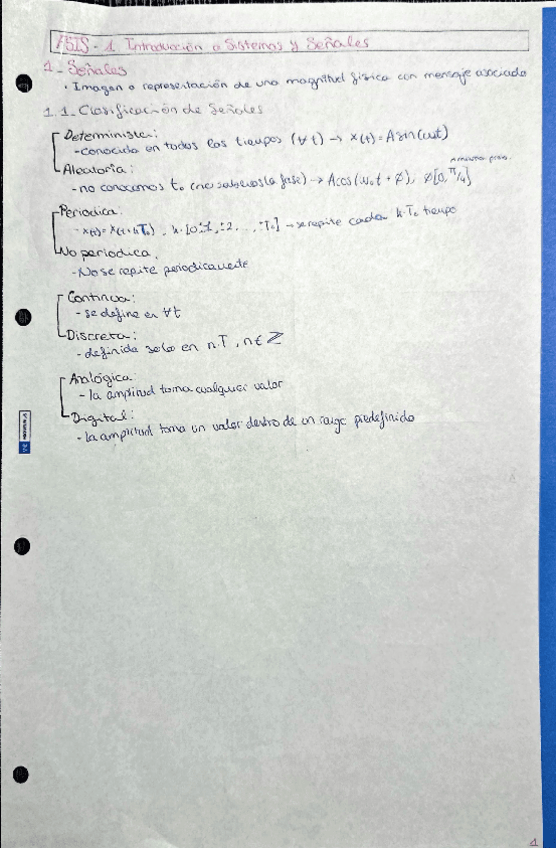 ASIS - 1 Introducción a Sistemas y Señales
1 - Señales
· Imagen o representación de una magnitud física con mensaje asociado
1.1. Clasificación de Señales
Determinista:
- conocida en todos los tiempos (∀ t) → x(t) = A sin(ωt)
Aleatoria:
- no conocemos t₀ (no sabemos la fase) → A cos(ω₀t + ∅), ∅[0, π/4]
Periodica:
- x(t) = x(t+kT₀), k[0±1, ±2, ... → se repite cada k·T₀ tiempo
No periodica.
- No se repite periodicamente
Continua:
- se define en ∀t
Discreta:
- definida solo en n·T, n∈ℤ
Analógica:
- la amplitud toma cualquier valor
Digital:
- la amplitud toma un valor dentro de un rango predefinido
1